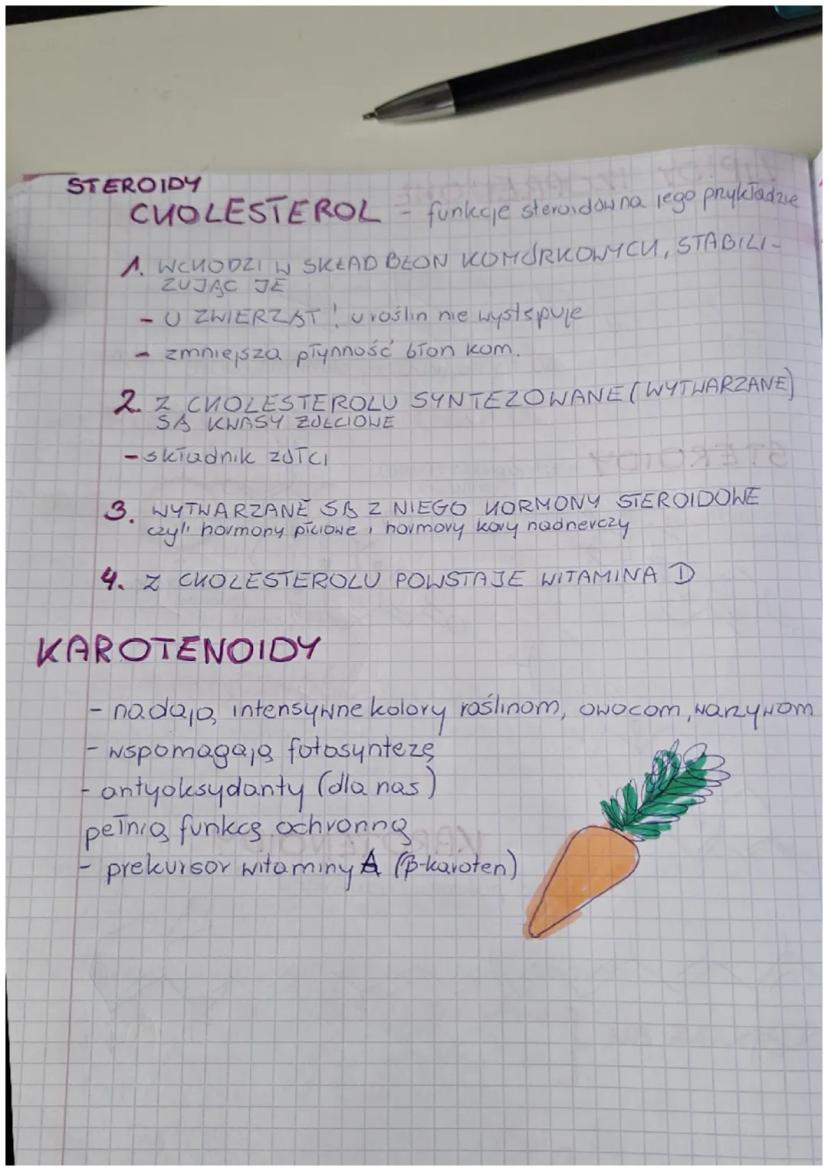 STEROIDY
CHOLESTEROL - funkcje steroidów na jego przykładzie
1. WCHODZI W SKŁAD BŁON KOMÓRKOWYCH, STABILI-
ZUJĄC JE
- U ZWIERZĄT! u roślin nie występuje
- zmniejsza płynność błon kom.
2. Z CHOLESTEROLU SYNTEZOWANE (WYTWARZANE)
SĄ KWASY ŻÓŁCIOWE
- składnik żółci
3. WYTWARZANE SĄ Z NIEGO HORMONY STEROIDOWE
czyli hormony płciowe i hormony kory nadnerczy
4. Z CHOLESTEROLU POWSTAJE WITAMINA D
KAROTENOIDY
- nadają intensywne kolory roślinom, owocom, warzywom
- wspomagają fotosyntezę
- antyoksydanty (dla nas)
pełnią funkcę ochronną
- prekursor witaminy A (β-karoten)